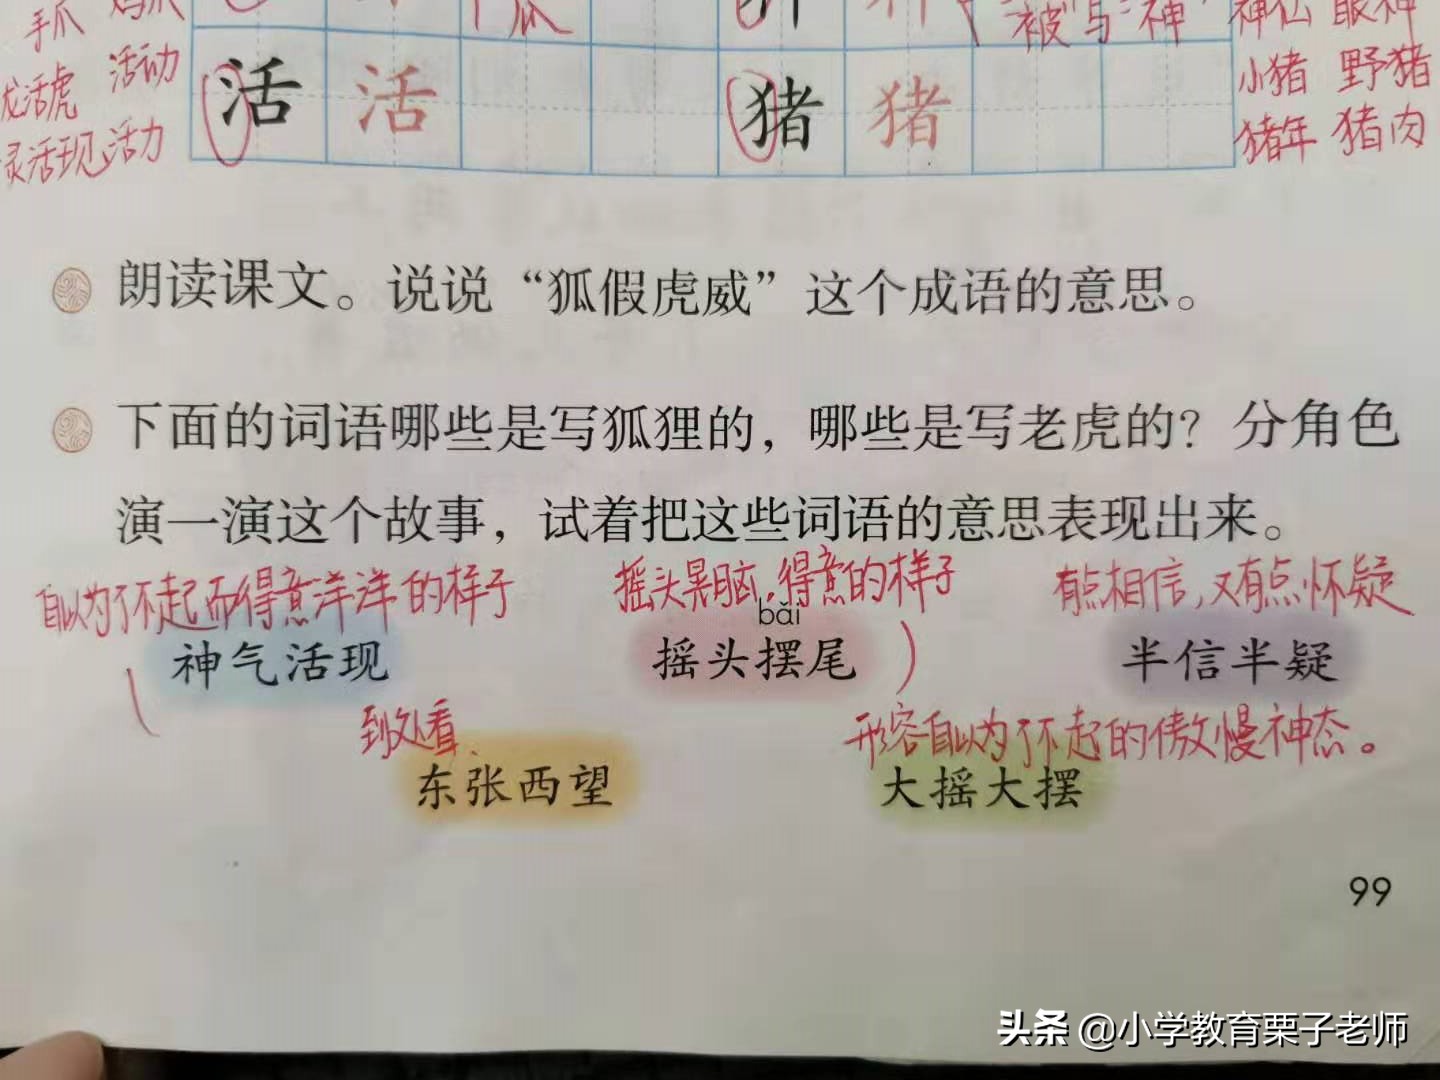 手爪
爪
被与神
神仙 眼神
龙活虎 活动
灵活现 活力
活 活
猪 猪
小猪 野猪
猪年 猪肉
朗读课文。说说“狐假虎威”这个成语的意思。
下面的词语哪些是写狐狸的，哪些是写老虎的？分角色
演一演这个故事，试着把这些词语的意思表现出来。
自以为了不起而得意洋洋的样子
摇头晃脑，得意的样子
有点相信，又有点怀疑
bǎi
神气活现 摇头摆尾 半信半疑
到处看.
形容自以为了不起的傲慢神态。
东张西望 大摇大摆
99
头条 @小学教育栗子老师